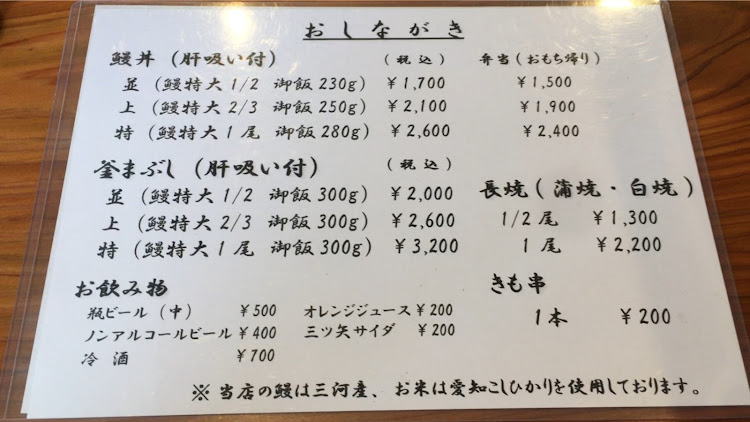 おしながき
鰻丼（肝吸い付） （税込） 弁当（おもち帰り）
並（鰻特大1/2 御飯230g） ￥1,700 ￥1,500
上（鰻特大2/3 御飯250g） ￥2,100 ￥1,900
特（鰻特大1尾 御飯280g） ￥2,600 ￥2,400
釜まぶし（肝吸い付） （税込）
並（鰻特大1/2 御飯300g） ￥2,000
上（鰻特大2/3 御飯300g） ￥2,600
特（鰻特大1尾 御飯300g） ￥3,200
長焼（蒲焼・白焼）
1/2尾 ￥1,300
1尾 ￥2,200
お飲み物
瓶ビール（中） ￥500 オレンジジュース￥200
ノンアルコールビール￥400 三ツ矢サイダ ￥200
冷酒 ￥700
きも串
1本 ￥200
※当店の鰻は三河産、お米は愛知こしひかりを使用しております。